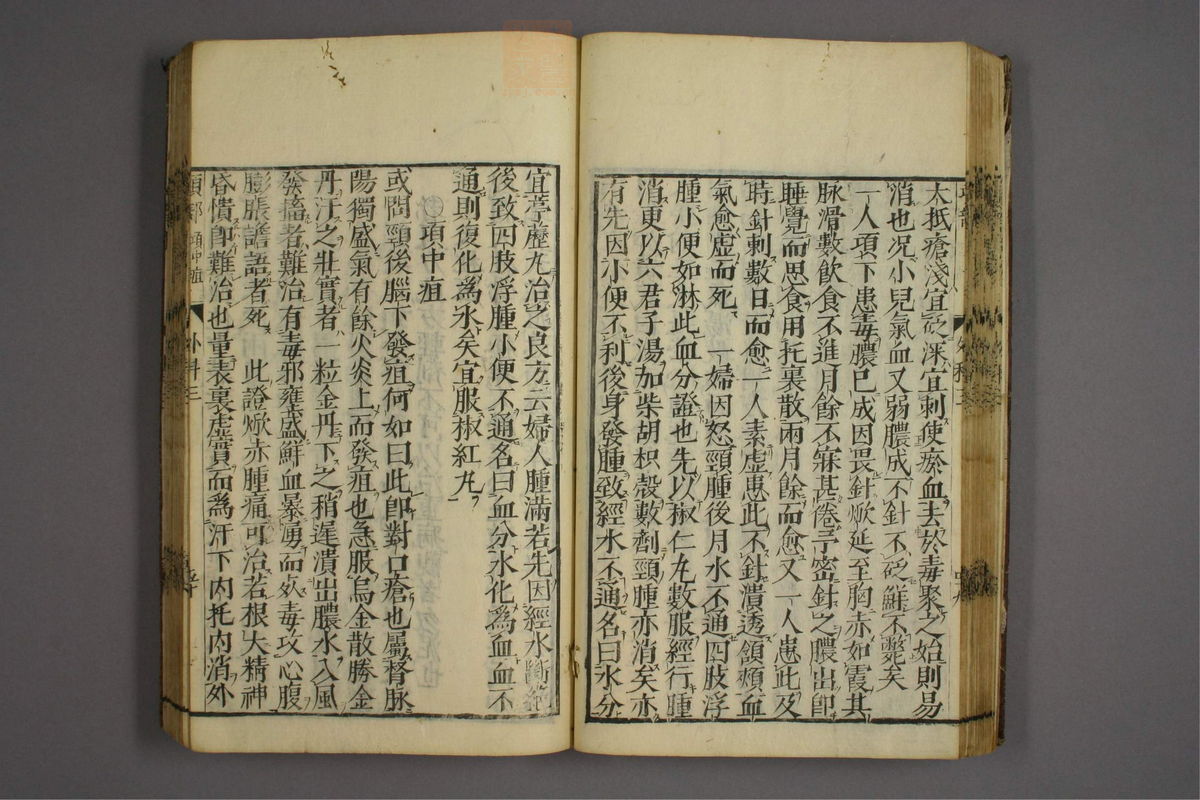 太抵瘡淺宜砭深宜刺使瘀血去於毒聚之始則易
消也况小兒氣血又弱膿成不針不砭鮮不斃矣
一人項下患毒膿已成因畏針焮延至胸赤如霞其
脉滑數飲食不進月餘不寐甚倦予密針之膿出即
睡覺而思食用托裏散兩月餘而愈又一人患此及
時針刺數日而愈一人素虛患此不針潰透頷頰血
氣愈虛而死 一婦因怒頸腫後月水不通四肢浮
腫小便如淋此血分證也先以椒仁丸數服經行腫
消更以六君子湯加柴胡枳殼數劑頸腫亦消矣亦
有先因小便不利後身發腫致經水不通名曰水分
宜葶藶丸治之良方云婦人腫滿若先因經水斷絶
後致四肢浮腫小便不通名曰血分水化爲血血不
通則復化爲水矣宜服椒紅丸
項中疽
或問頸後腦下發疽何如曰此卽對口瘡也屬督脉
陽獨盛氣有餘火炎上而發疽也急服烏金散勝金
丹汗之壯實者一粒金丹下之稍遲潰出膿水入風
發搐者難治有毒邪壅盛鮮血暴湧而𣦸毒攻心腹
膨脹譫語者死 此證焮赤腫痛可治若根大精神
昏憒卽難治也量表裏虛實而爲汗下内托内消外
項部 項中疽 外科三